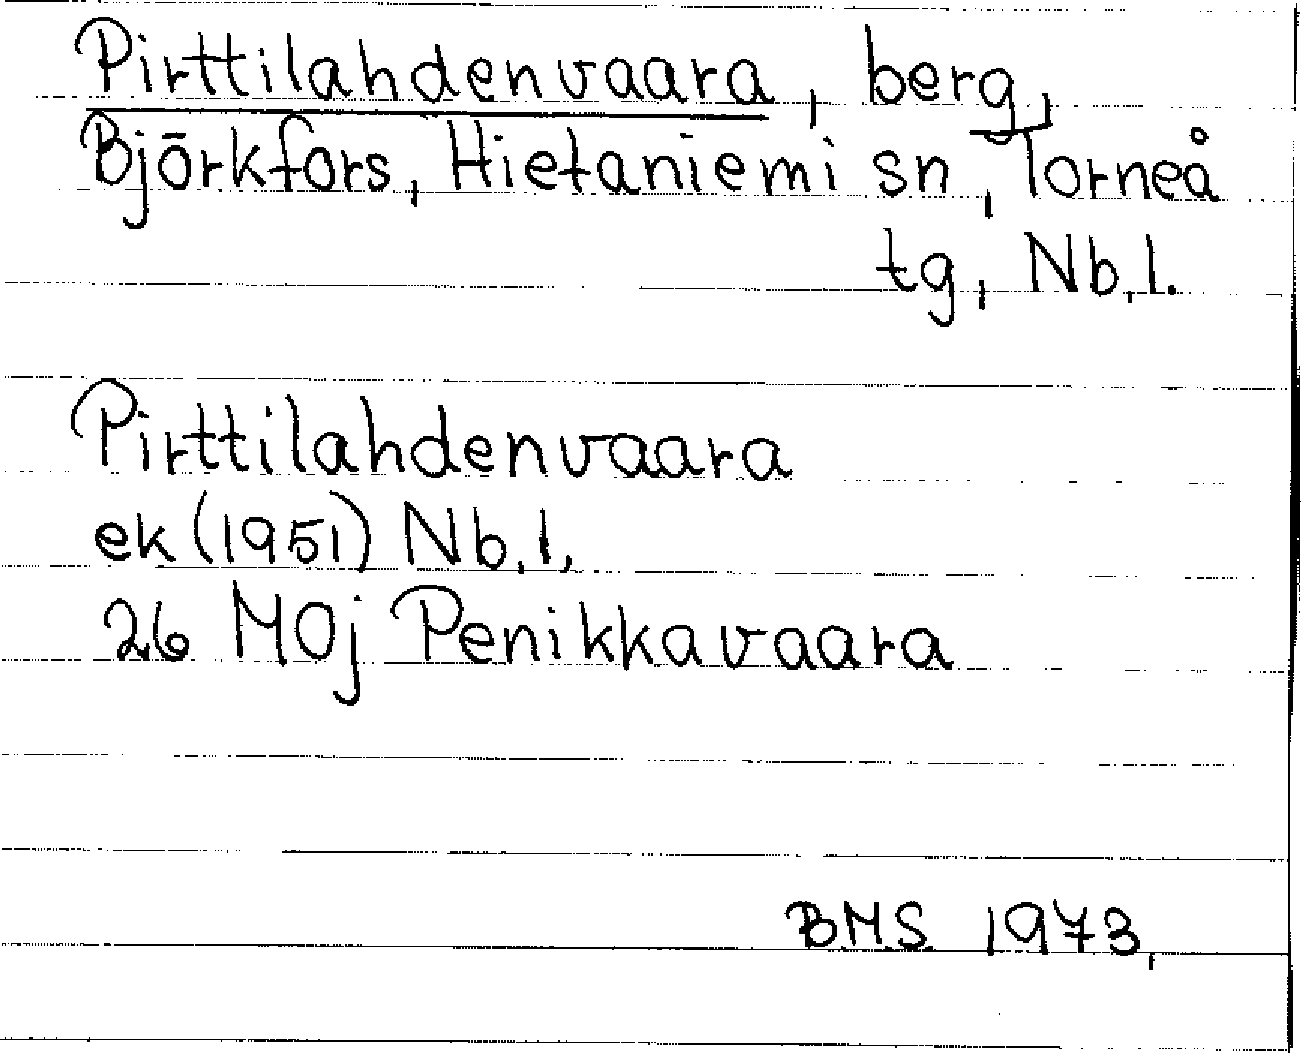 Pirttilahdenvaara, berg,
Björkfors, Hietaniemi sn, Torneå
tg, Nb.l.
Pirttilahdenvaara
ek (1951) Nb.l,
26 MOj Penikkavaara
BMS 1973,